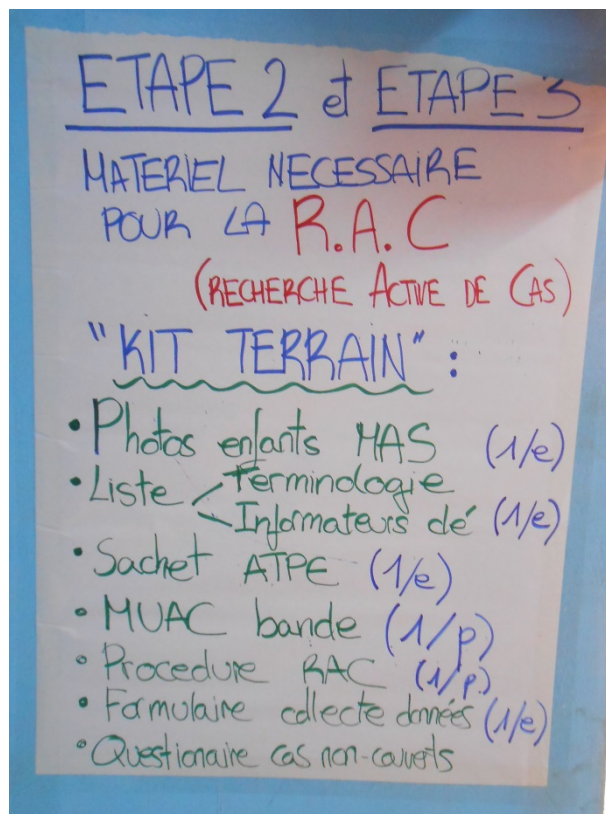 ETAPE 2 et ETAPE 3
MATERIEL NECESSAIRE
POUR LA R.A.C
(RECHERCHE ACTIVE DE CAS)
"KIT TERRAIN" :
• Photos enfants MAS (1/e)
• Liste Terminologie
Informateurs clé (1/e)
• Sachet ATPE (1/e)
• MUAC bande (1/p)
• Procedure RAC (1/p.)
• Formulaire collecte données (1/e)
• Questionaire cas non-couverts